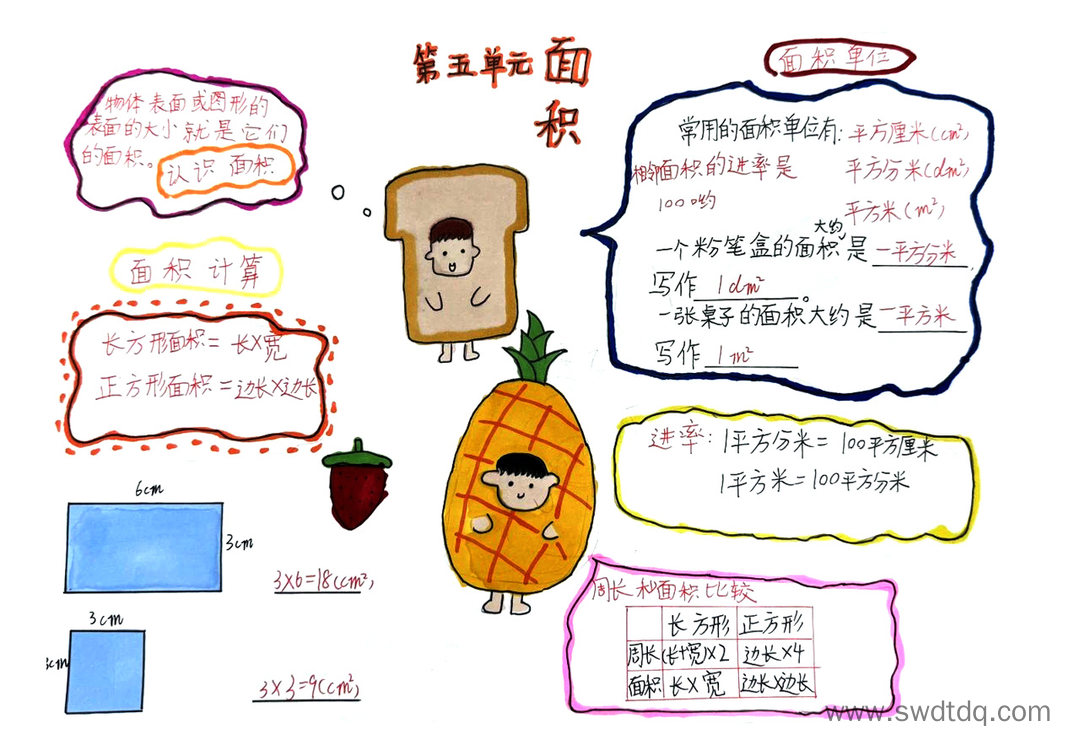 第五单元 面
积
物体表面或图形的
表面的大小就是它们
的面积。
认识 面积
面积计算
长方形面积=长×宽
正方形面积=边长×边长
6cm
3cm
3×6=18(cm²)
3cm
3cm
3×3=9(cm²)
面积单位
常用的面积单位有:平方厘米(cm²)
相邻面积的进率是 平方分米(dm²)
100哟 平方米(m²)
大约
一个粉笔盒的面积是一平方分米
写作 1dm²。
一张桌子的面积大约是一平方米
写作 1m²
进率:1平方分米=100平方厘米
1平方米=100平方分米
周长和面积比较
长方形 正方形
周长 (长+宽)×2 边长×4
面积 长×宽 边长×边长
www.swdtdq.com